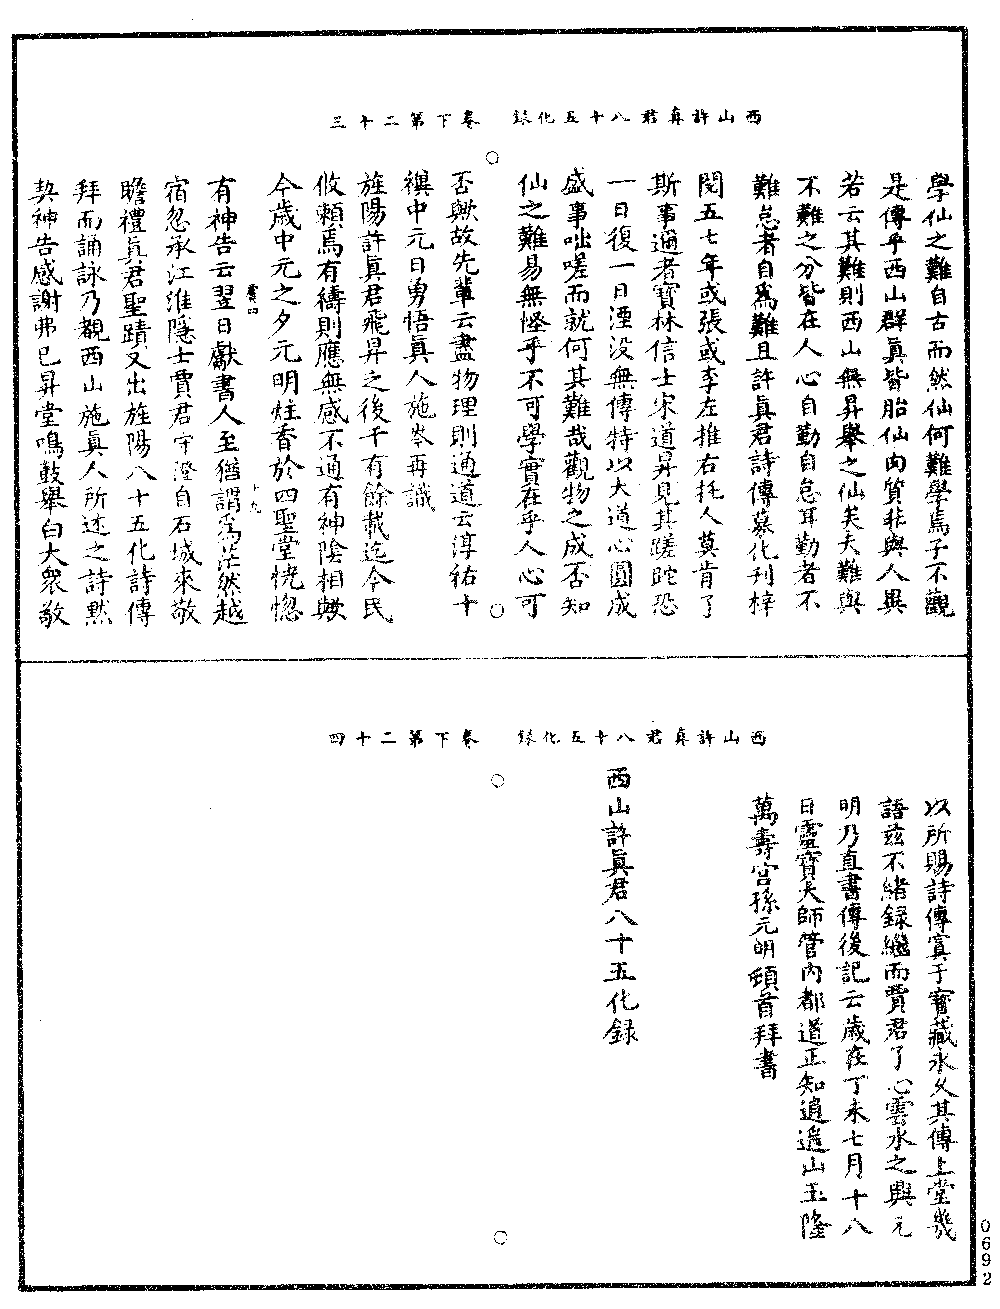 西山許真君八十五化録　卷下第二十三
學仙之難自古而然仙何難學焉子不觀
是傳乎西山群眞皆胎仙肉質非與人異
若云其難則西山無昇舉之仙矣夫難與
不難之分皆在人心自勤自怠耳勤者不
難怠者自爲難且許眞君詩傳募化刋梓
閲五七年或張或李左推右托人莫肯了
斯事適者寶林信士宋道昇見其蹉跎恐
一日復一日湮没無傳特以大道心圓成
盛事咄嗟而就何其難哉觀物之成否知
仙之難易無怪乎不可學實在乎人心可
否歟故先輩云盡物理則通道云淳祐十
禩中元日勇悟眞人施岑再識
旌陽許眞君飛昇之後千有餘載迄今民
攸賴焉有禱則應無感不通有神陰相歟
今歲中元之夕元明炷香於四聖堂恍惚
有神告云翌日獻書人至猶謂爲茫然越
十九
宿忽承江淮隱士賈君守澄自石城來敬
瞻禮眞君聖蹟又出旌陽八十五化詩傳
拜而誦詠乃覩西山施眞人所述之詩黙
契神告感謝弗已昇堂鳴鼓舉白大衆敬
西山許真君八十五化録　卷下第二十四
以所賜詩傳寘于寳藏永久其傳上堂幾
語茲不緒録繼而賈君了心雲水之興元
明乃直書傳後記云歲在丁未七月十八
日靈寶大師管内都道正知逍遥山玉隆
萬壽宮孫元明頓首拜書
西山許眞君八十五化録
0692